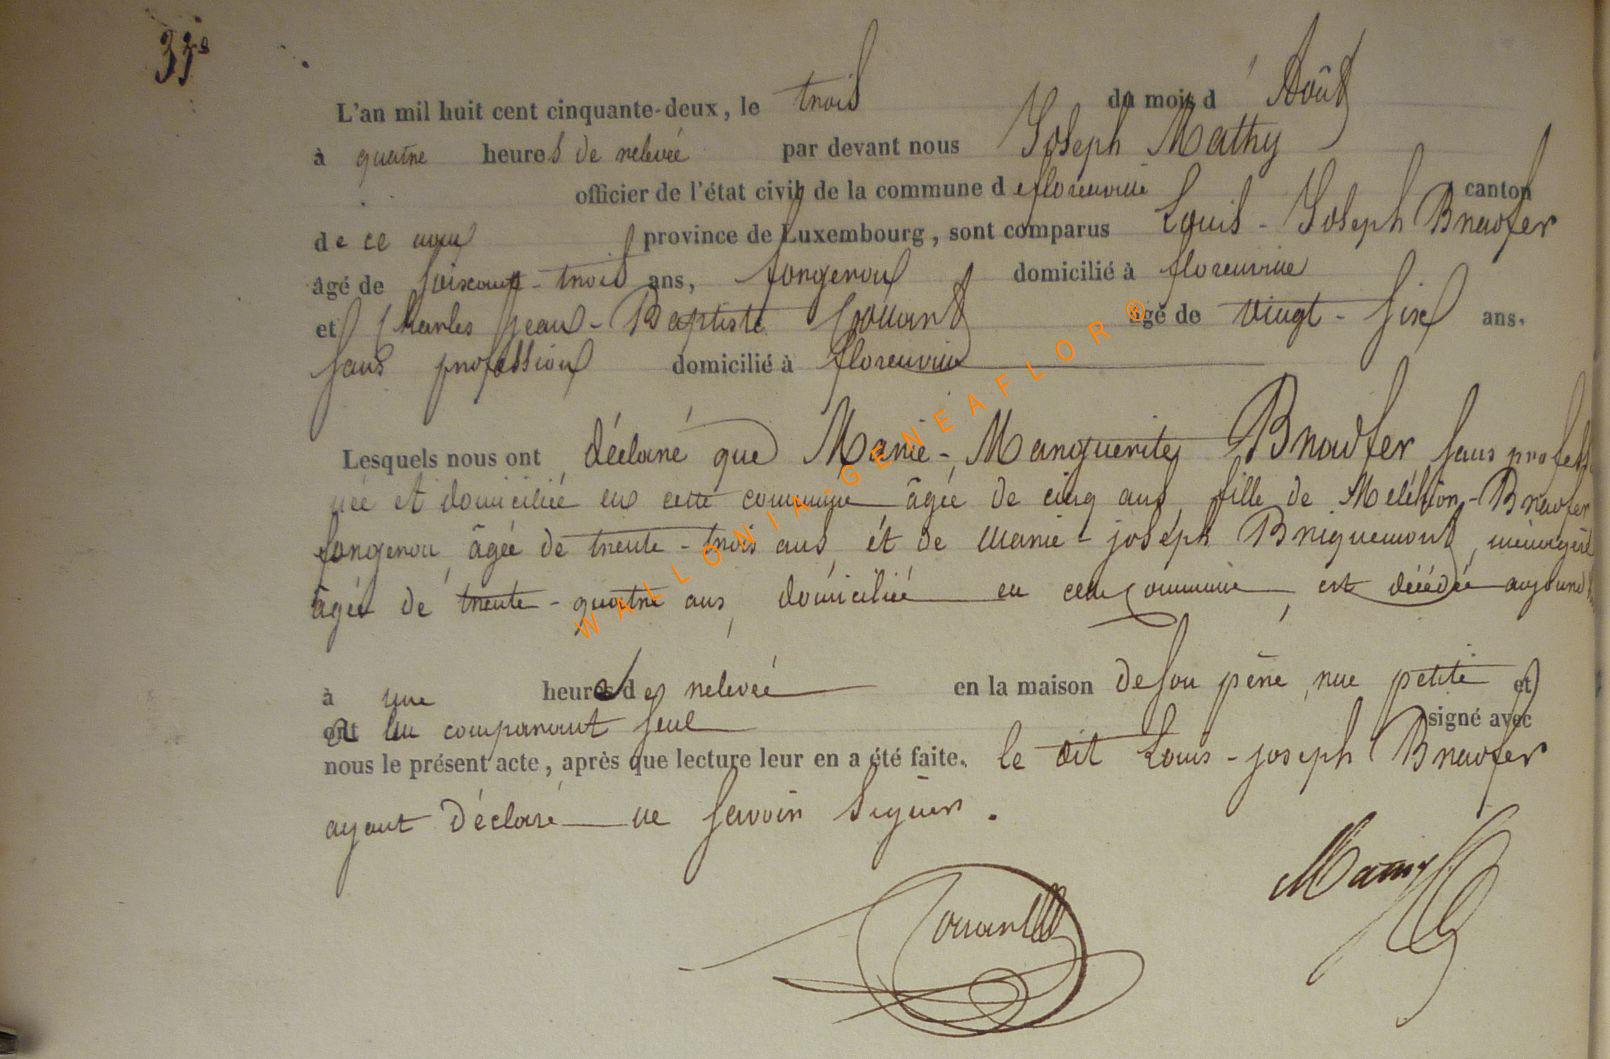 33e
L'an mil huit cent cinquante-deux, le trois du mois d'Août
à quatre heures de relevée par devant nous Joseph Mathy
officier de l'état civil de la commune de florenville canton
de ce nom province de Luxembourg, sont comparus Louis-Joseph Bradfer
âgé de soixante-trois ans, forgeron domicilié à florenville
et Charles Jean-Baptiste âgé de vingt-six ans.
sans profession domicilié à florenville
Lesquels nous ont déclaré que Marie-Marguerite Bradfer sans profess
née et domiciliée en cette commune âgée de cinq ans, fille de Bradfer
forgeron, âgé de trente-trois ans et de Marie-joseph Briquemont, ménagère
âgée de trente-quatre ans, domiciliée en cette Commune, est décédée aujourd'
à une heures de relevée en la maison de son père, rue petite et
ont un comparant seul signé avec
nous le présent acte, après que lecture leur en a été faite. le dit Louis-joseph Bradfer
ayant déclaré ne savoir signer.
Mathy
WALLONIA-GENEAFLOR®